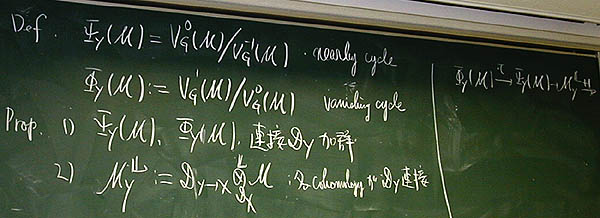 Def. Ψ_Y(M) = V_G^0(M)/V_G^{-1}(M) . nearby cycle
Φ_Y(M) := V_G^1(M)/V_G^0(M) vanishing cycle
Prop. 1) Ψ_Y(M), Φ_Y(M), 連接 D_Y 加群
2) M_Y^L := D_{Y→X} ⊗^L_{D_X} M : 各 cohomology が D_Y 連接
Φ_Y(M) → Ψ_Y(M) → M_Y^L +1→